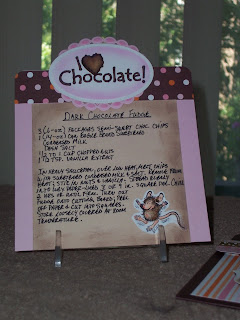 I
Chocolate!
DARK CHOCOLATE FUDGE
3 (6-OZ) PACKAGES SEMI-SWEET CHOC CHIPS
1 (14-OZ) CAN EAGLE BRAND SWEETENED
CONDENSED MILK
DASH SALT
1/2 TO 1 CUP CHOPPED NUTS
1 1/2 TSP. VANILLA EXTRACT
IN HEAVY SAUCEPAN, OVER LOW HEAT, MELT CHIPS
W/ SWEETENED CONDENSED MILK & SALT. REMOVE FROM
HEAT; STIR IN NUTS & VANILLA. SPREAD EVENLY
INTO WAX PAPER-LINED 8 OR 9 IN. SQUARE PAN. CHILL
2 HRS OR UNTIL FIRM. TURN OUT
FUDGE ONTO CUTTING BOARD; PEEL
OFF PAPER & CUT INTO SQUARES.
STORE LOOSELY COVERED AT ROOM
TEMPERATURE.